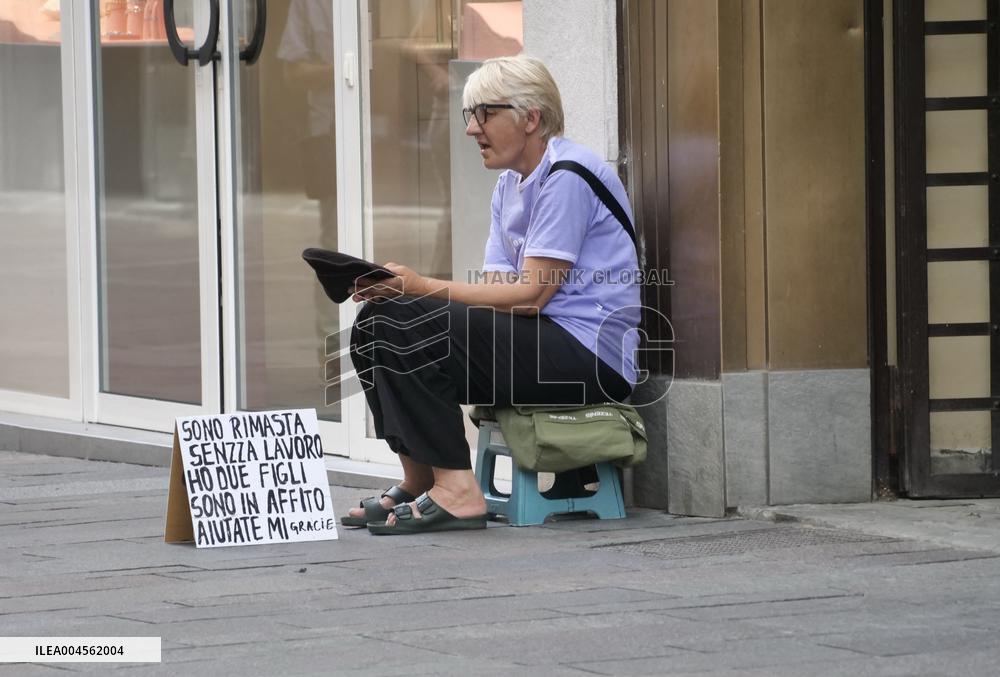 SONO RIMASTA
SENZZA LAVORO
HO DUE FIGLI
SONO IN AFFITO
AIUTATE MI GRACIE
IMAGE LINK GLOBAL
ILG
ILEA004562004